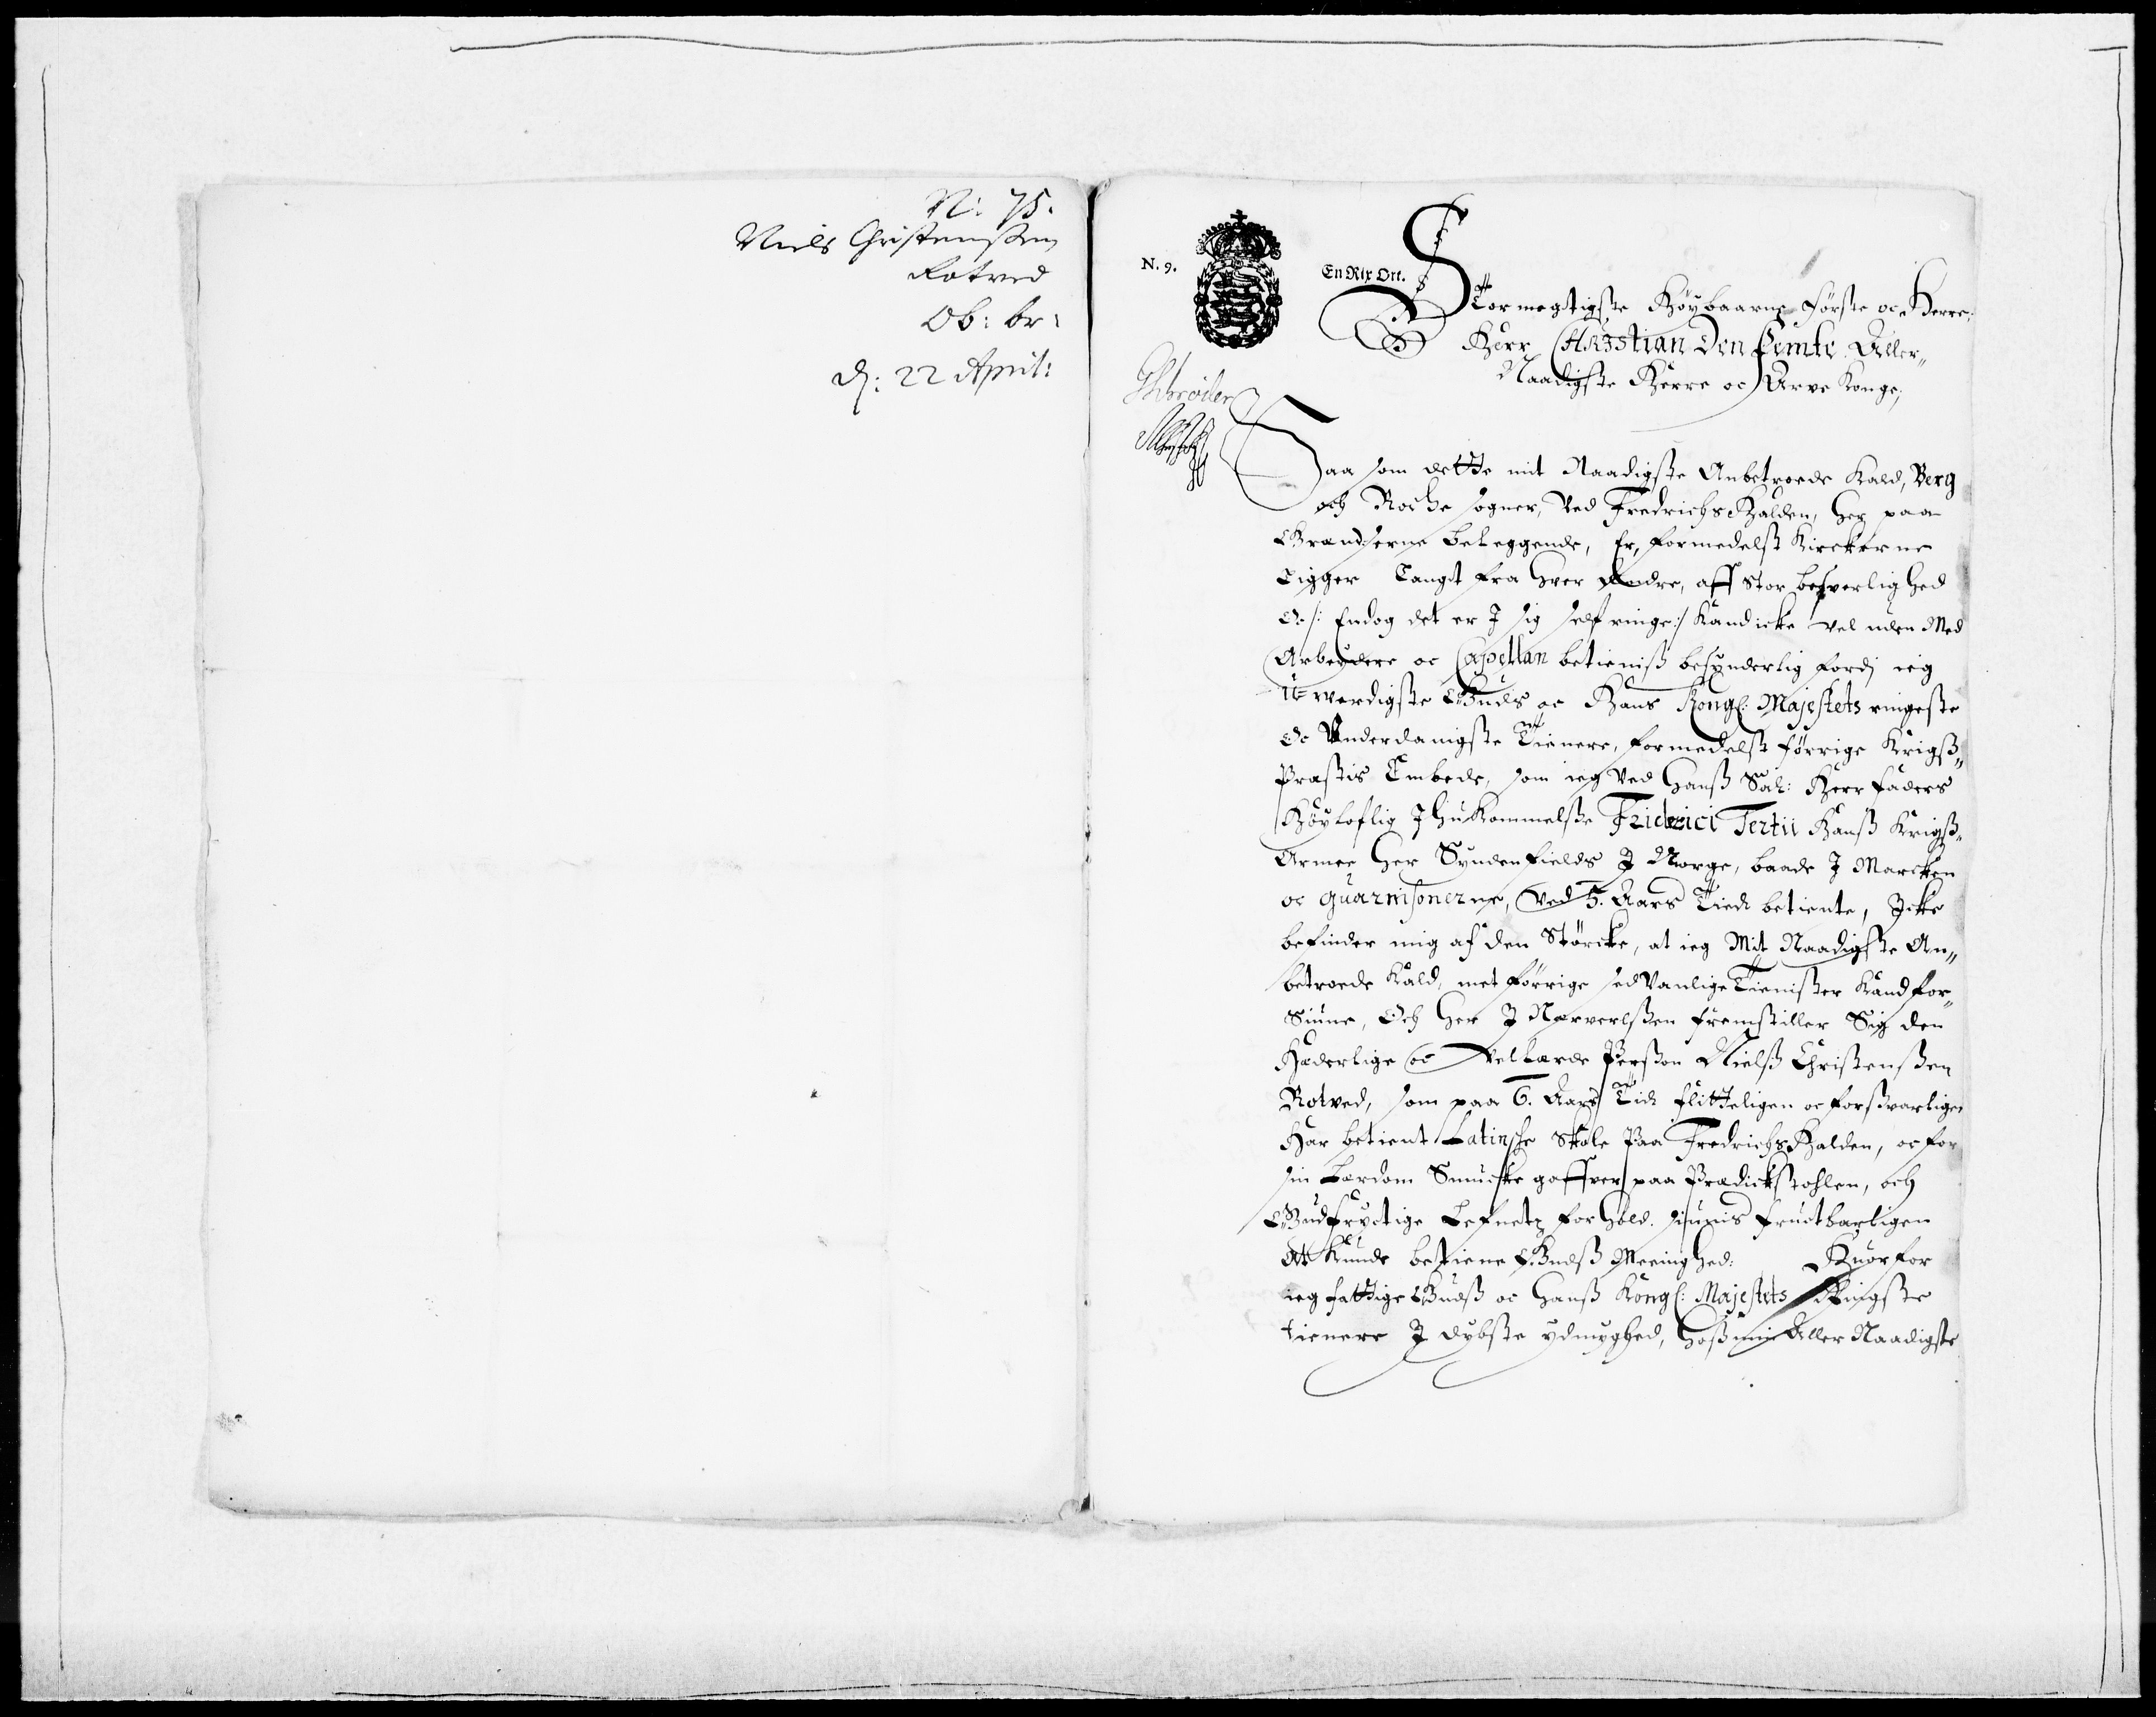 N: 75.
Niels Christensen
Rotved
Ob: br:
d: 22 April:
N. 9.
En Rix Ort.
Stormegtigste Høybaarne Første oc Herre,
Herr Christian Den Femte Aller„
Naadigste Herre oc Arve Konge,
Schrøder
Saa som dette mit Naadigste Anbetroede Kald, Berg
och Rocke sogner, Ved Fredrichs Halden, her paa
Grændserne beleggende, Er, formedelst Kirckerne
Ligger Langt fra hver Andre, aff Stor besverlighed
Oc /: Endog det er J sig self ringe :/ Kand icke vel uden Med
Arbeydere oc Capellan betienis besynderlig fordj ieg
U-werdigste Guds oc Hans Kongl: Majestets ringeste
Oc Underdanigste Tienere, formedelst førrige Krigs„
Præstis Embede, som ieg Ved Hanß Sal: Herr Faders
Høyloflig Jhukommelse Friderici Tertii Hanß Krigß„
Armee her Syndenfields J Norge, baade J Marcken
oc guarnisonerne, Ved 5. Aars Tied betiente, Icke
befinder mig af den Størcke, at ieg Mit Naadigste An„
betroede Kald, met førrige sedvanlige Tienister Kand for„
Siune, Och her J Nærverelßen fremstiller Sig den
Hæderlige oc Vellærde Perßon Nielß Christenßen
Rotved, som paa 6. Aars Tid flitteligen oc forsvarligen
Har betient Latinsche Skole Paa Fredrichs Halden, oc for
sin Lærdom Smucke gaffver paa Prædickstohlen, och
Gudfryctige Lefnetz forhold. siunis fructbarligen
At Kunde betiene Gudß Meenighed: Huorfor
ieg fattige Gudß oc Hanß Kongl: Majestets Ringste
tienere J dybste ydmyghed, hoß min Aller Naadigste